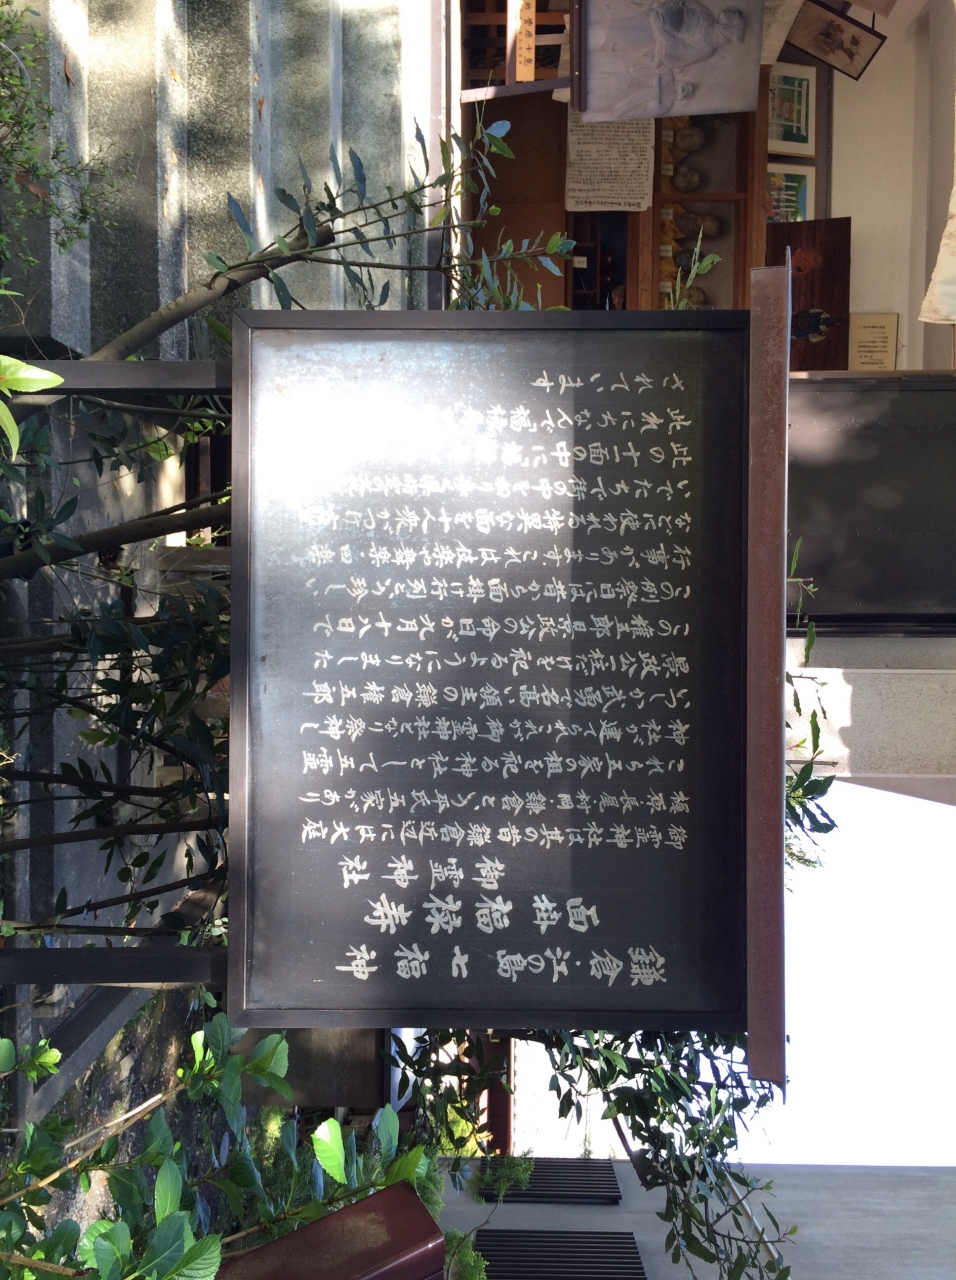 鎌倉・江の島七福神
面掛福禄寿
御霊神社
御霊神社は其の昔鎌倉近辺には大庭
梶原長尾村岡・鎌倉という平氏五家があり
これら五家の祖を祀る神社として五霊
神社が建てられこれが御霊神社となり祭神も
いつか武勇で名高い領主の鎌倉権五郎
景政公一柱だけを祀るようになりました
この権五郎景政公の命日が九月十八日で
この例祭日には昔から面掛け行列という珍しい
行事があります.これは伎楽や舞楽・田楽
などに使われる特異な面を十人衆がつけ
いでたちで街の中をねり歩く
此の十一面の中に
此れにちなんで福禄
されています